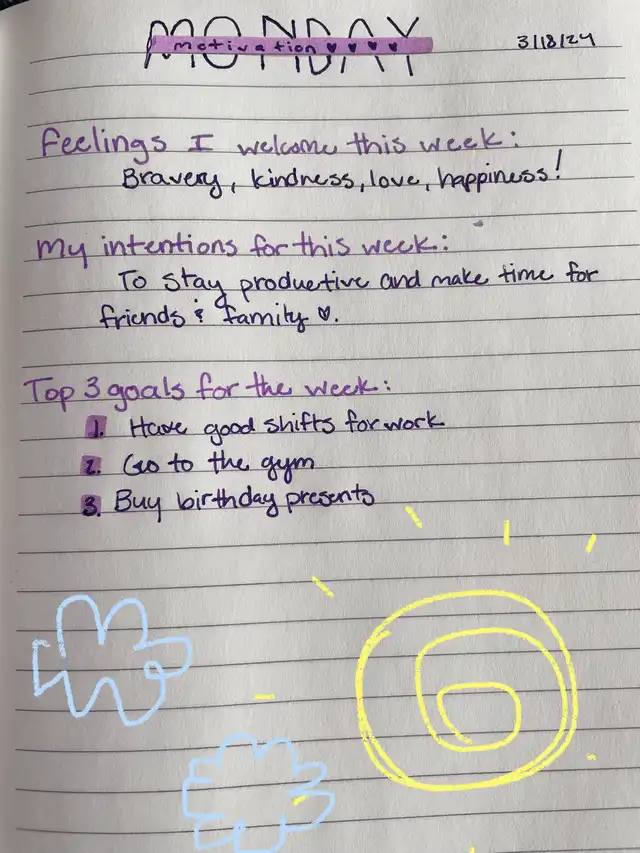 MONDAY
motivation ♥ ♥ ♥ ♥
3/18/24
Feelings I welcome this week:
Bravery, kindness, love, happiness!
My intentions for this week:
To stay productive and make time for
friends & family ♥.
Top 3 goals for the week:
1. Have good shifts for work
2. Go to the gym
3. Buy birthday presents